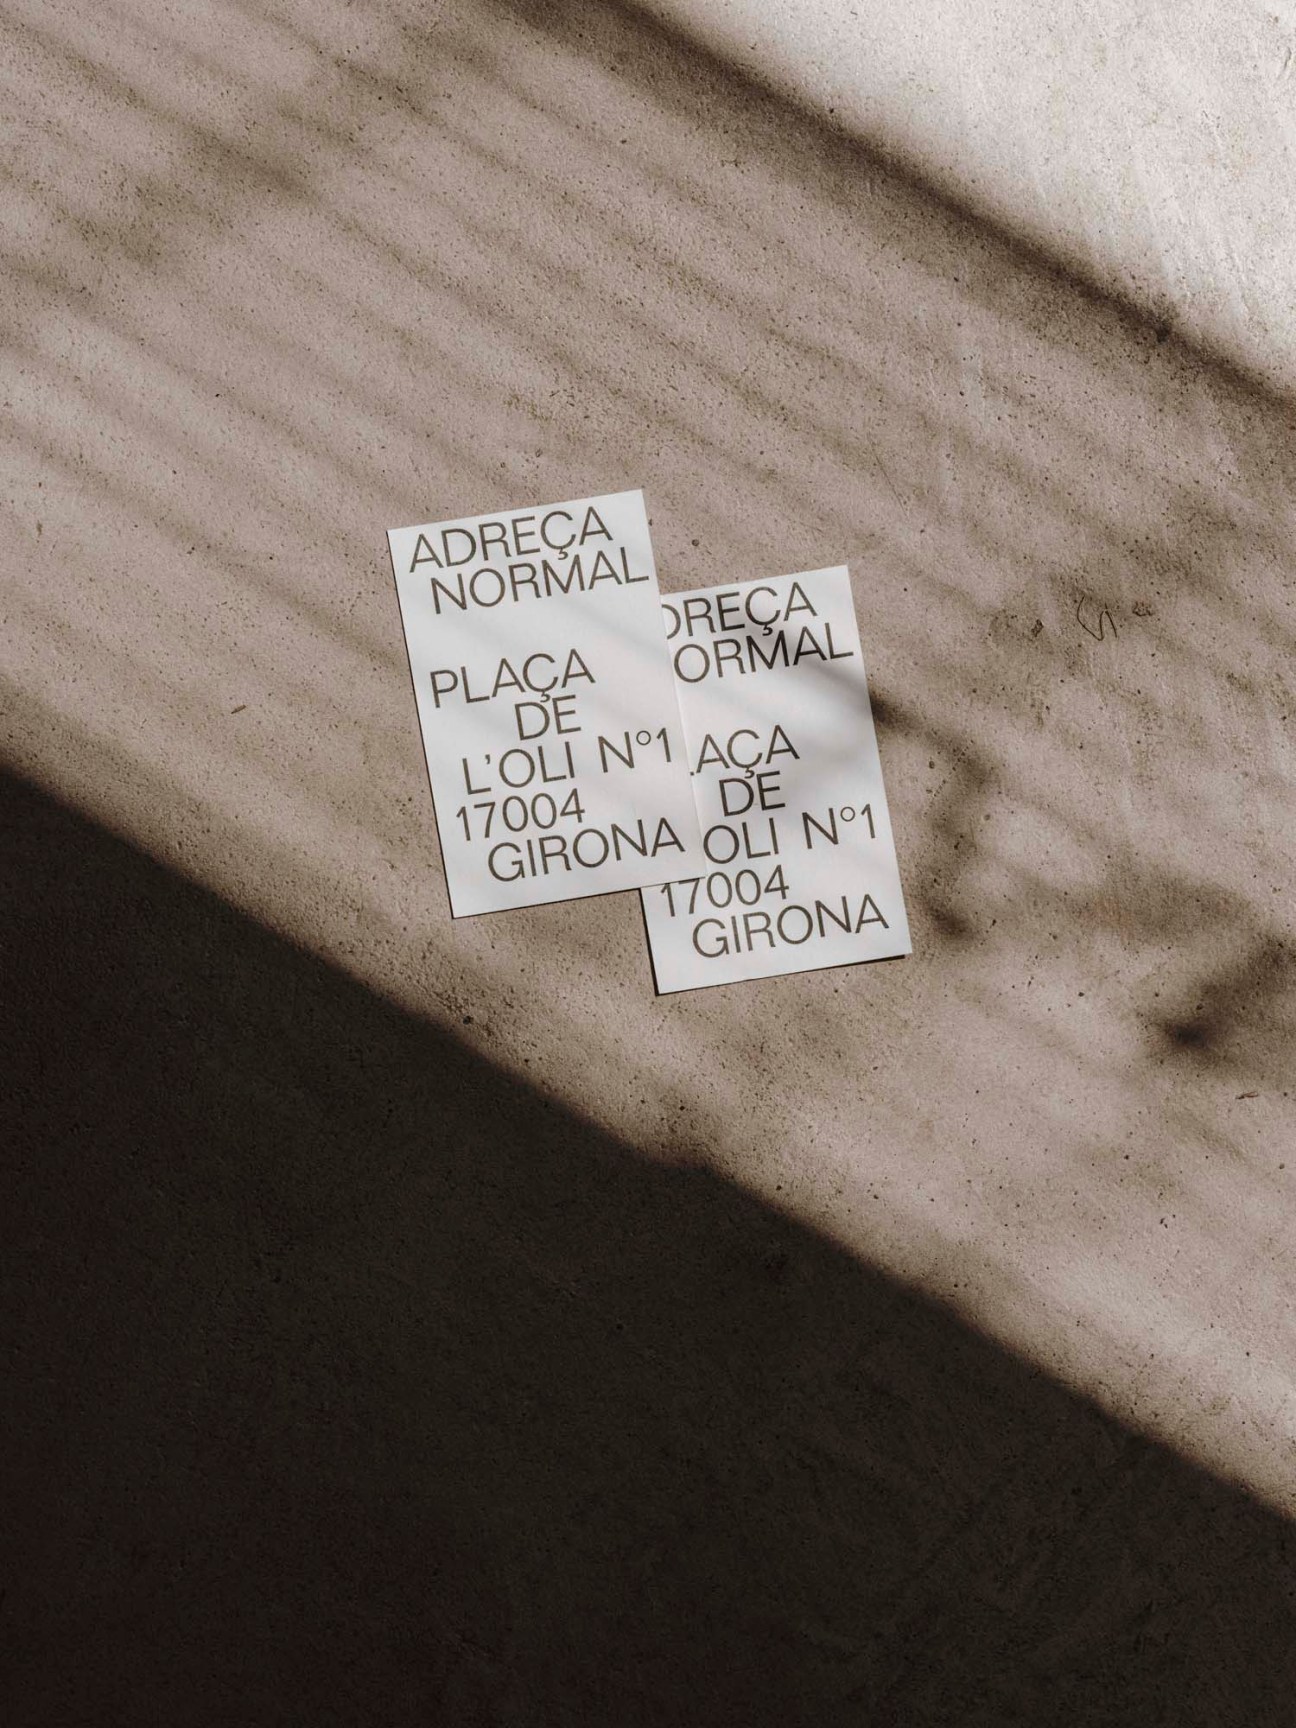 ADREÇA
NORMAL
PLAÇA
DE
L'OLI Nº1
17004
GIRONA
DREÇA
ORMAL
AÇA
DE
OLI Nº1
17004
GIRONA